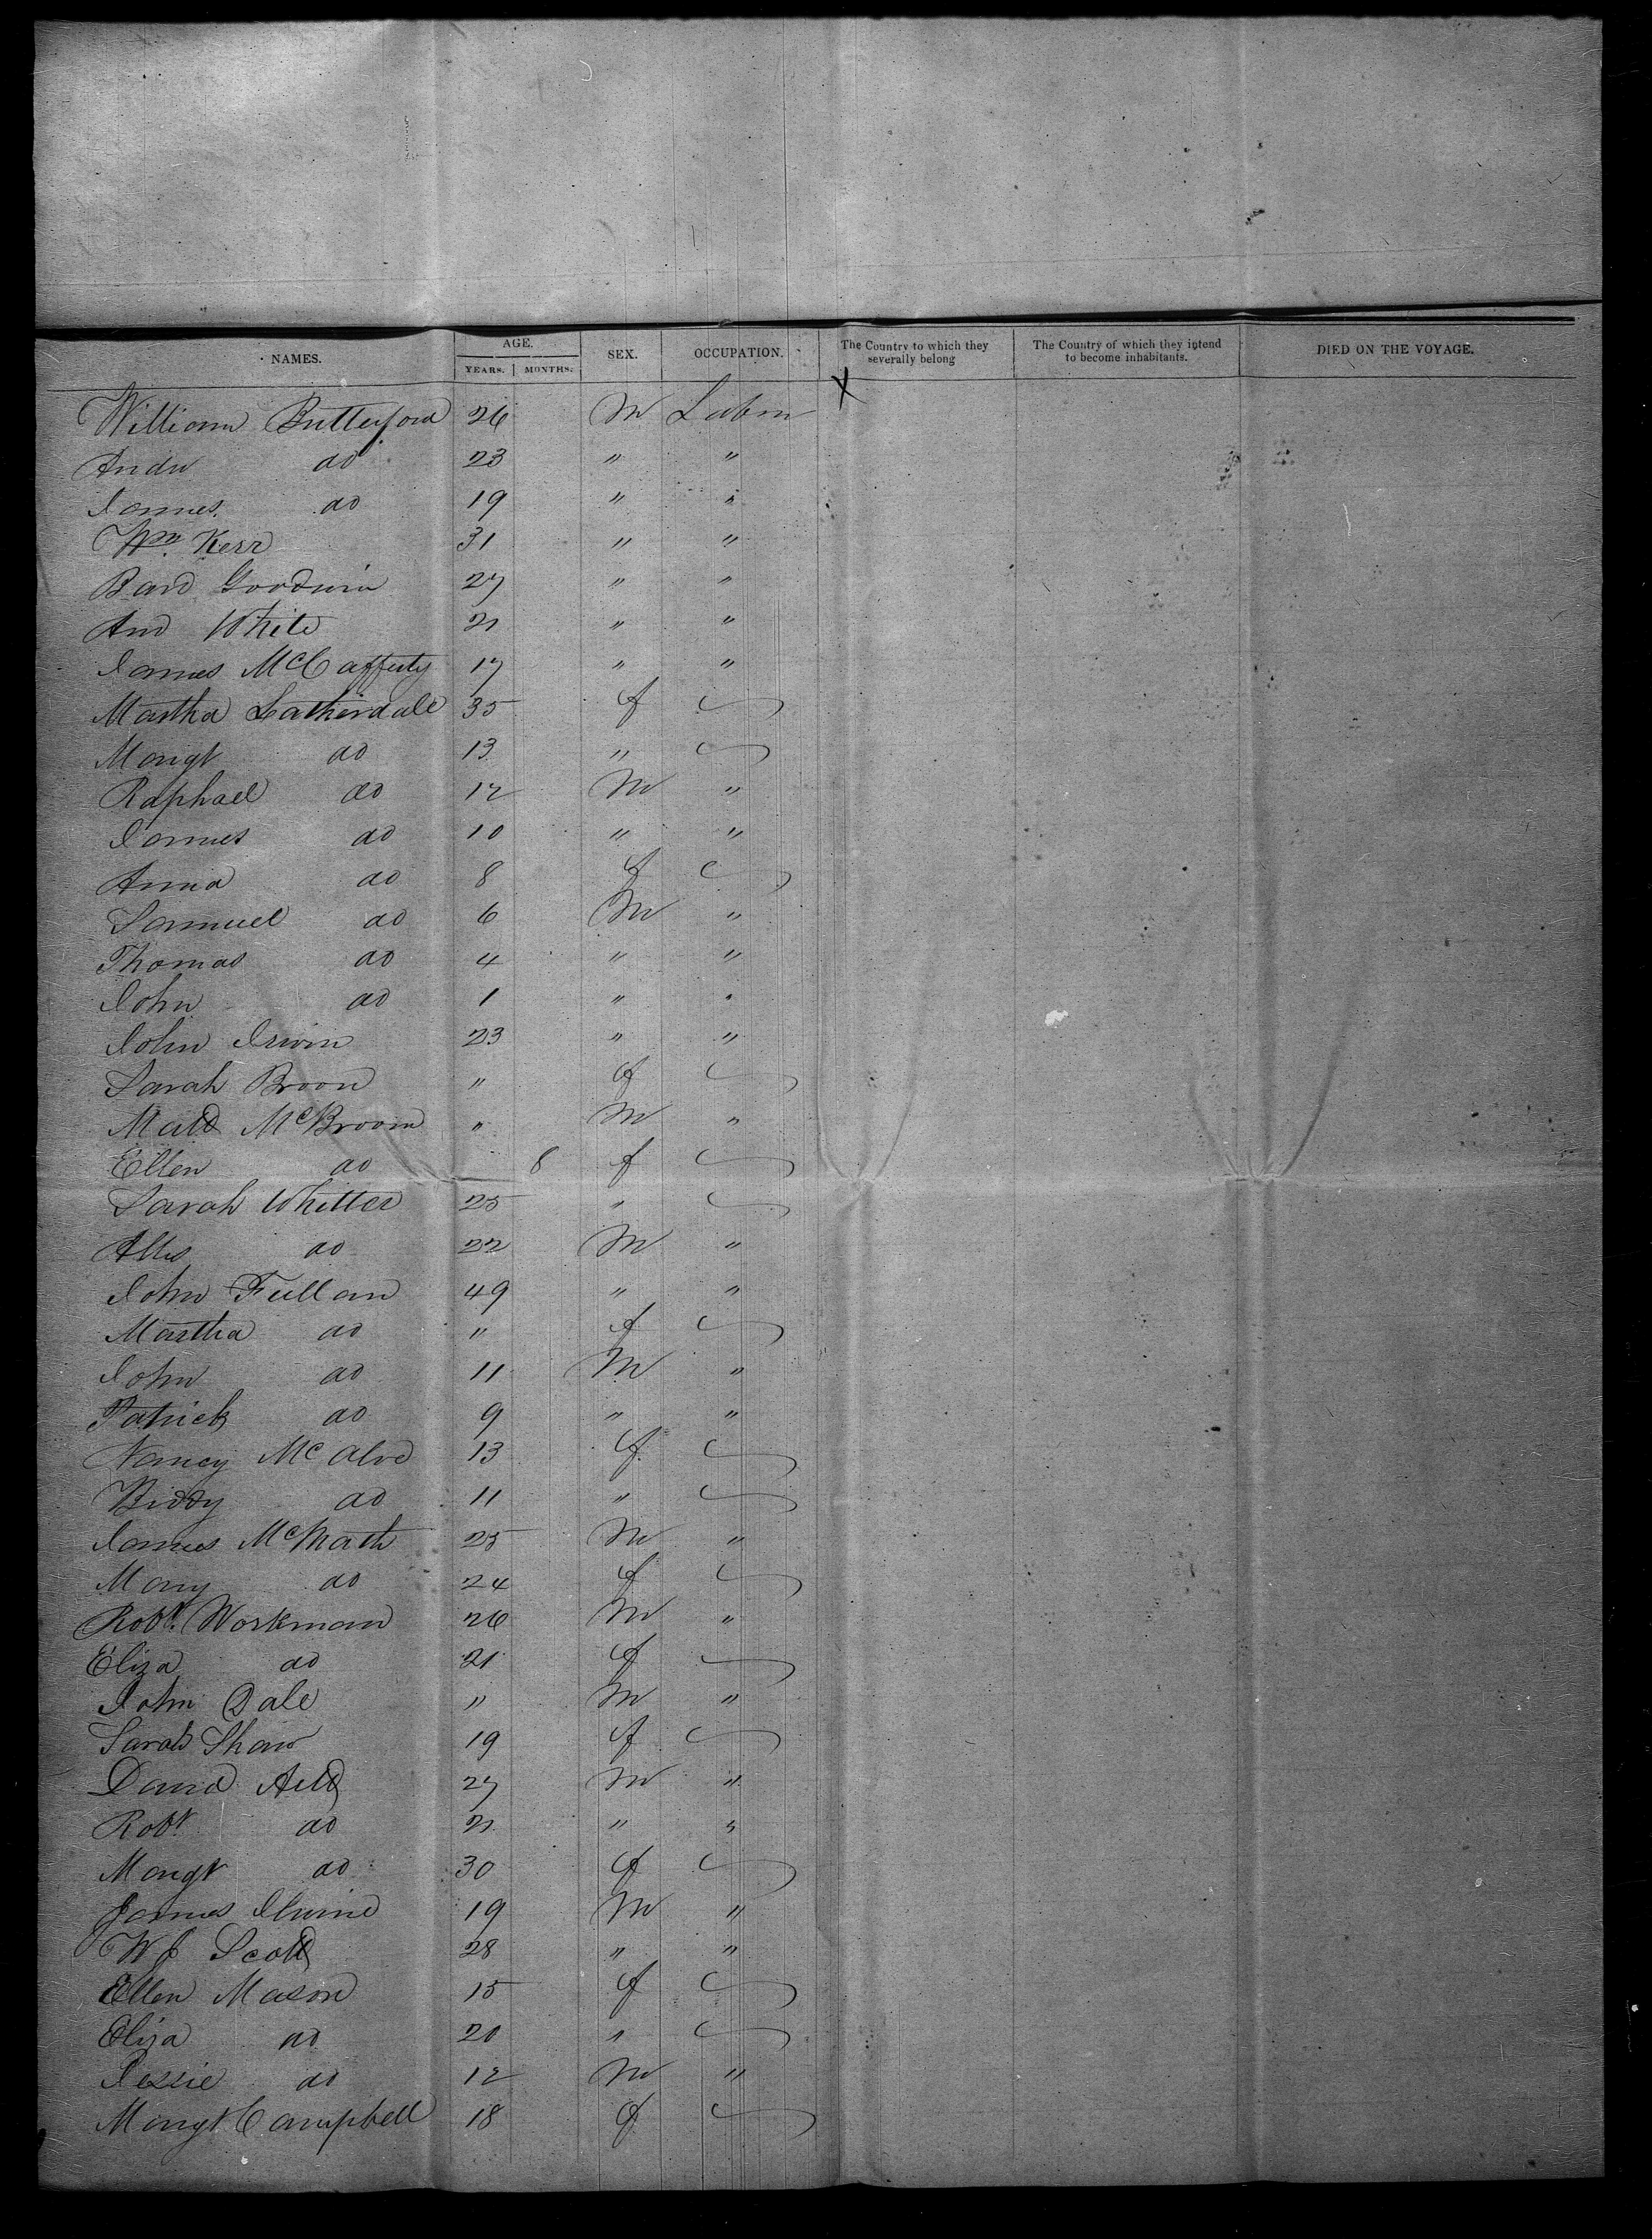 NAMES. AGE. SEX. OCCUPATION. The Country to which they severally belong The Country of which they intend to become inhabitants. DIED ON THE VOYAGE.
YEARS. MONTHS.
X
William Butterford 26 M Labor
Andw do 23 " "
James do 19 " "
Wm. Kerr 31 " "
Bard Goodwin 27 " "
And White 21 " "
James McCafferty 17 " "
Martha Leatherdale 35 f
Margt do 13 "
Raphael do 12 M "
James do 10 " "
Anna do 8 f
Samuel do 6 M "
Thomas do 4 " "
John do 1 " "
John Irwin 23 " "
Sarah Broon " f
McBroom " M "
Ellen do 8 f
Sarah Whitter 25 "
do 22 M "
John Fullan 49 " "
Martha do " f
John do 11 M "
Patrick do 9 " "
Nancy McAlvo 13 f
Biddy do 11 "
James McMath 25 M "
Mary do 24 f
Robt. Workman 26 M "
Eliza do 21 f
John Dale " M "
Sarah Shaw 19 f
David Auld 27 M "
Robt do 21 " "
Margt do 30 f
James Irvine 19 M "
W J Scott 28 " "
Ellen Mason 15 f
Eliza do 20 "
Jessie do 12 M "
Margt Campbell 18 f